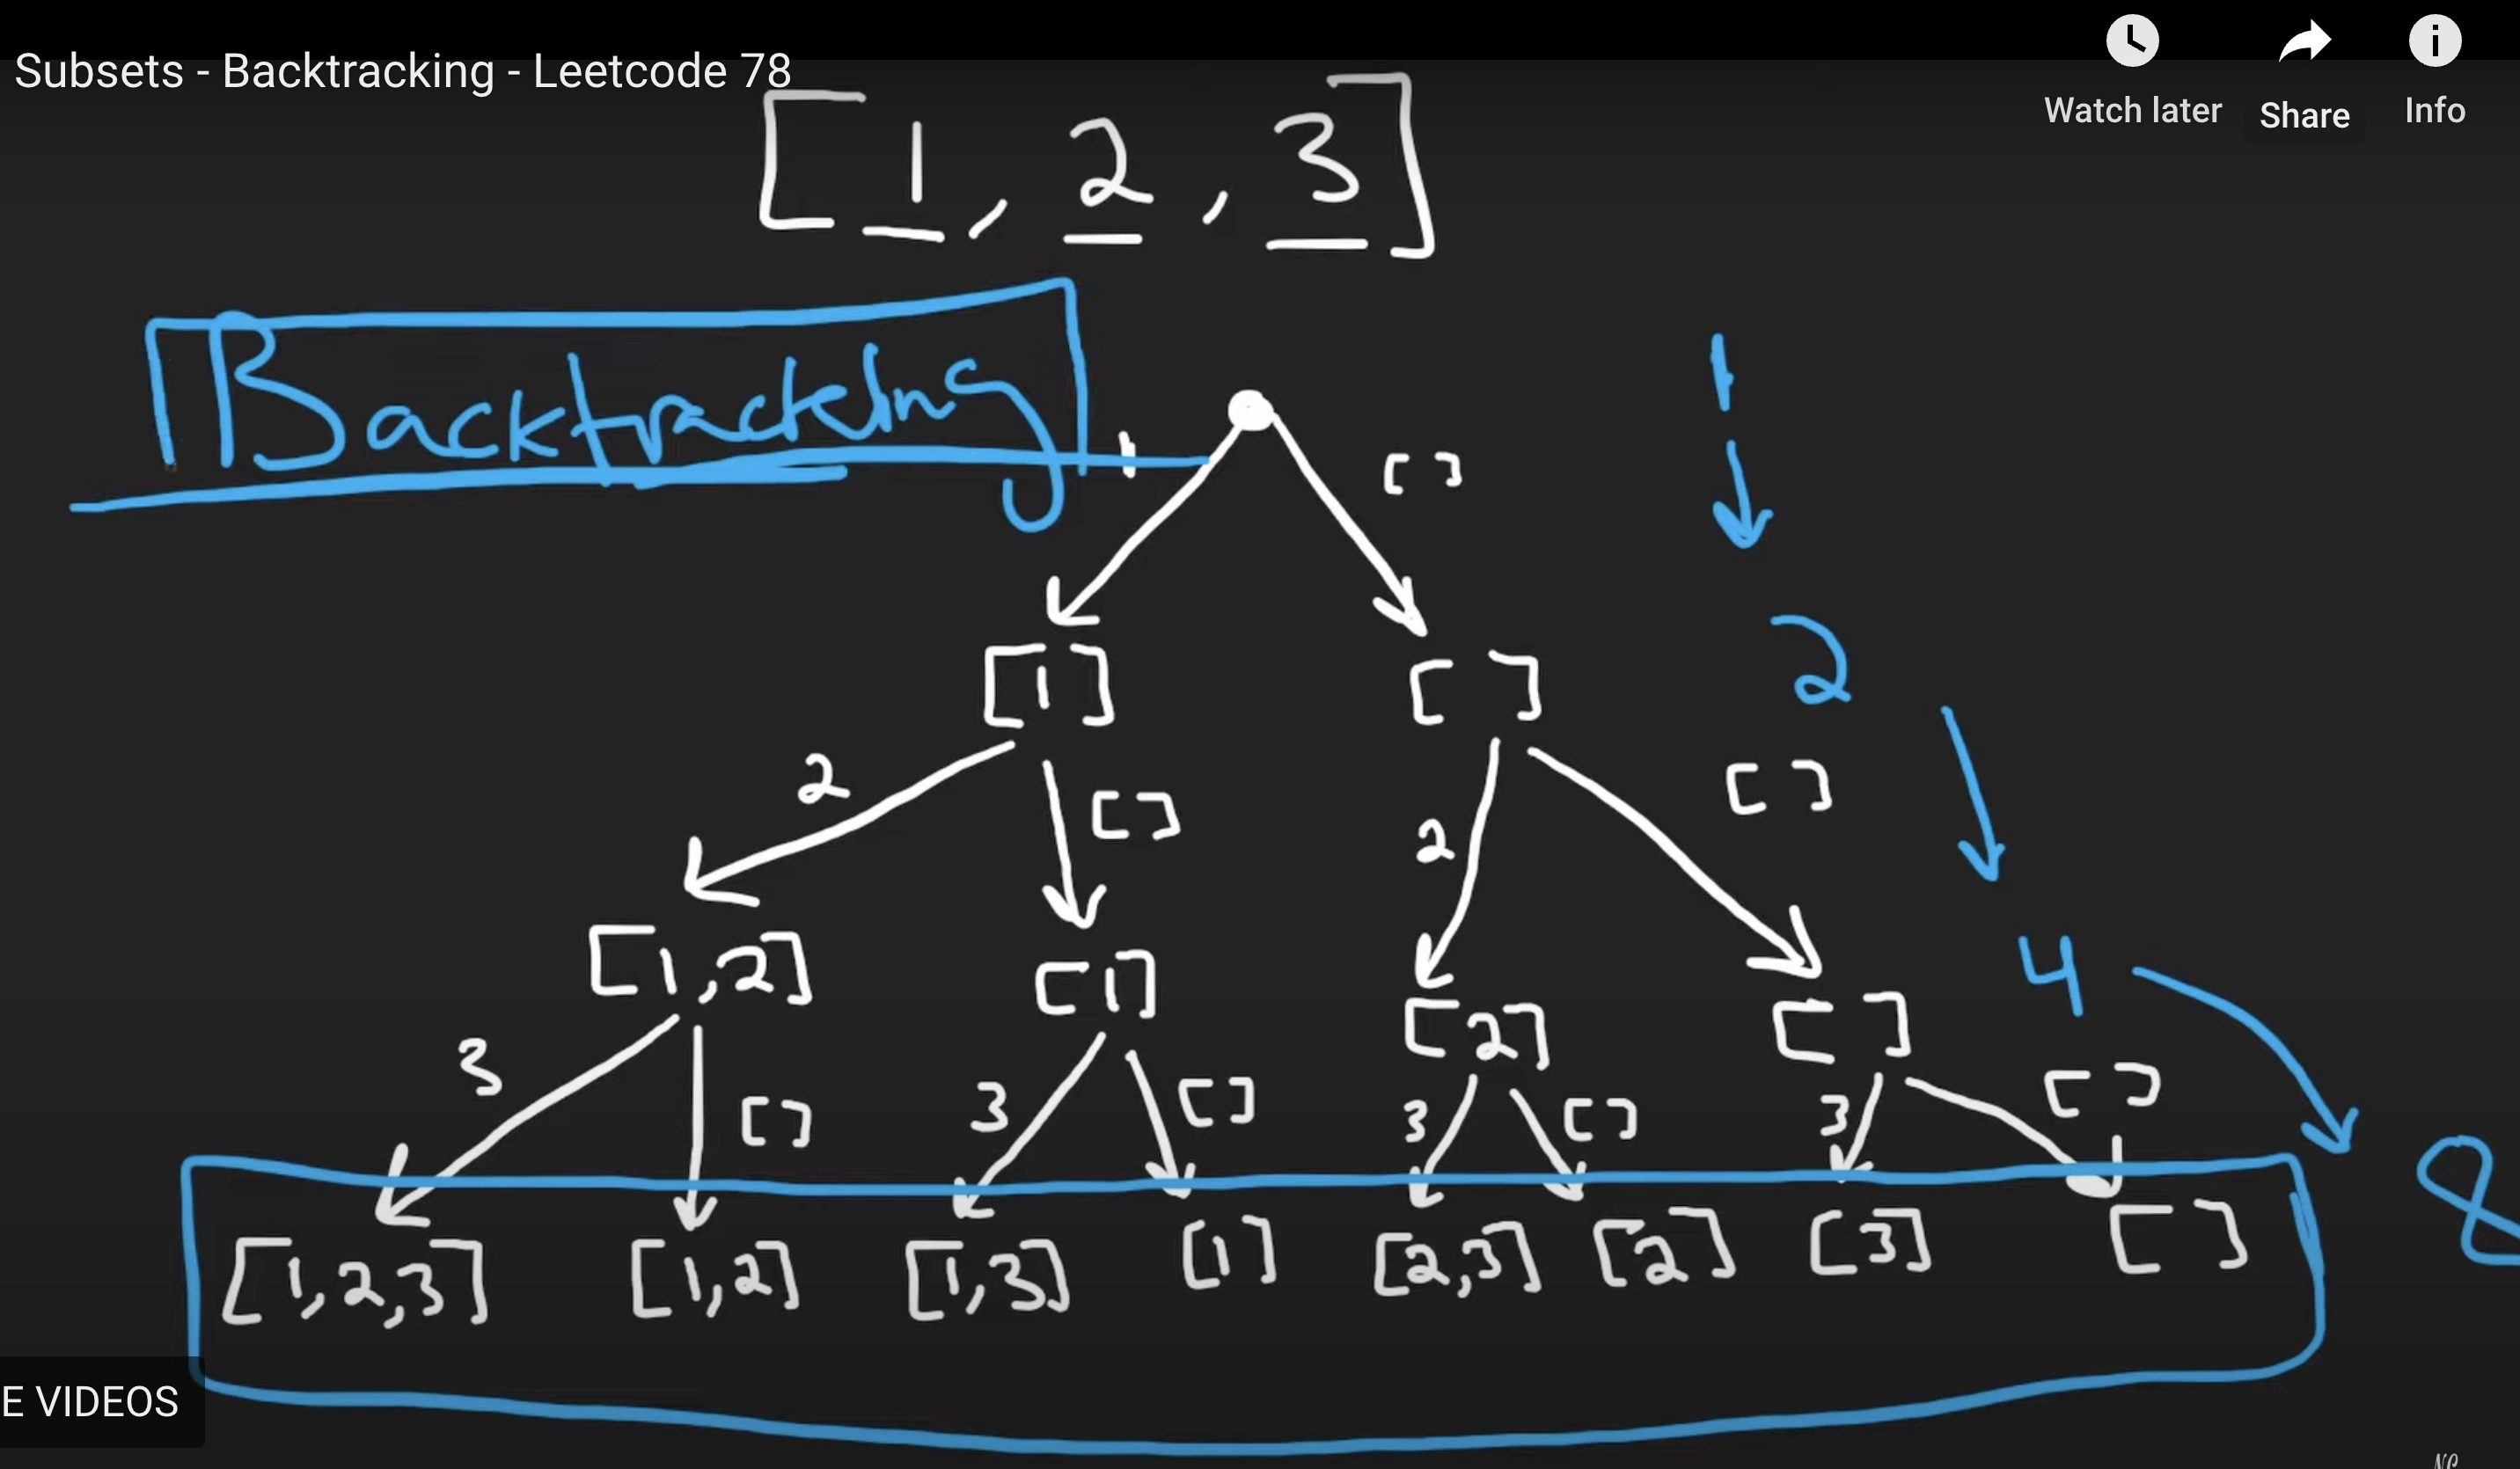 Subsets - Backtracking - Leetcode 78
Watch later Share Info
[1, 2, 3]
Backtracking
1 [ ] 1
[1] [ ] 2
2 [ ] 2 [ ]
[1,2] [1] [2] [ ] 4
3 [ ] 3 [ ] 3 [ ] 3 [ ] 8
[1,2,3] [1,2] [1,3] [1] [2,3] [2] [3] [ ]
E VIDEOS
NC